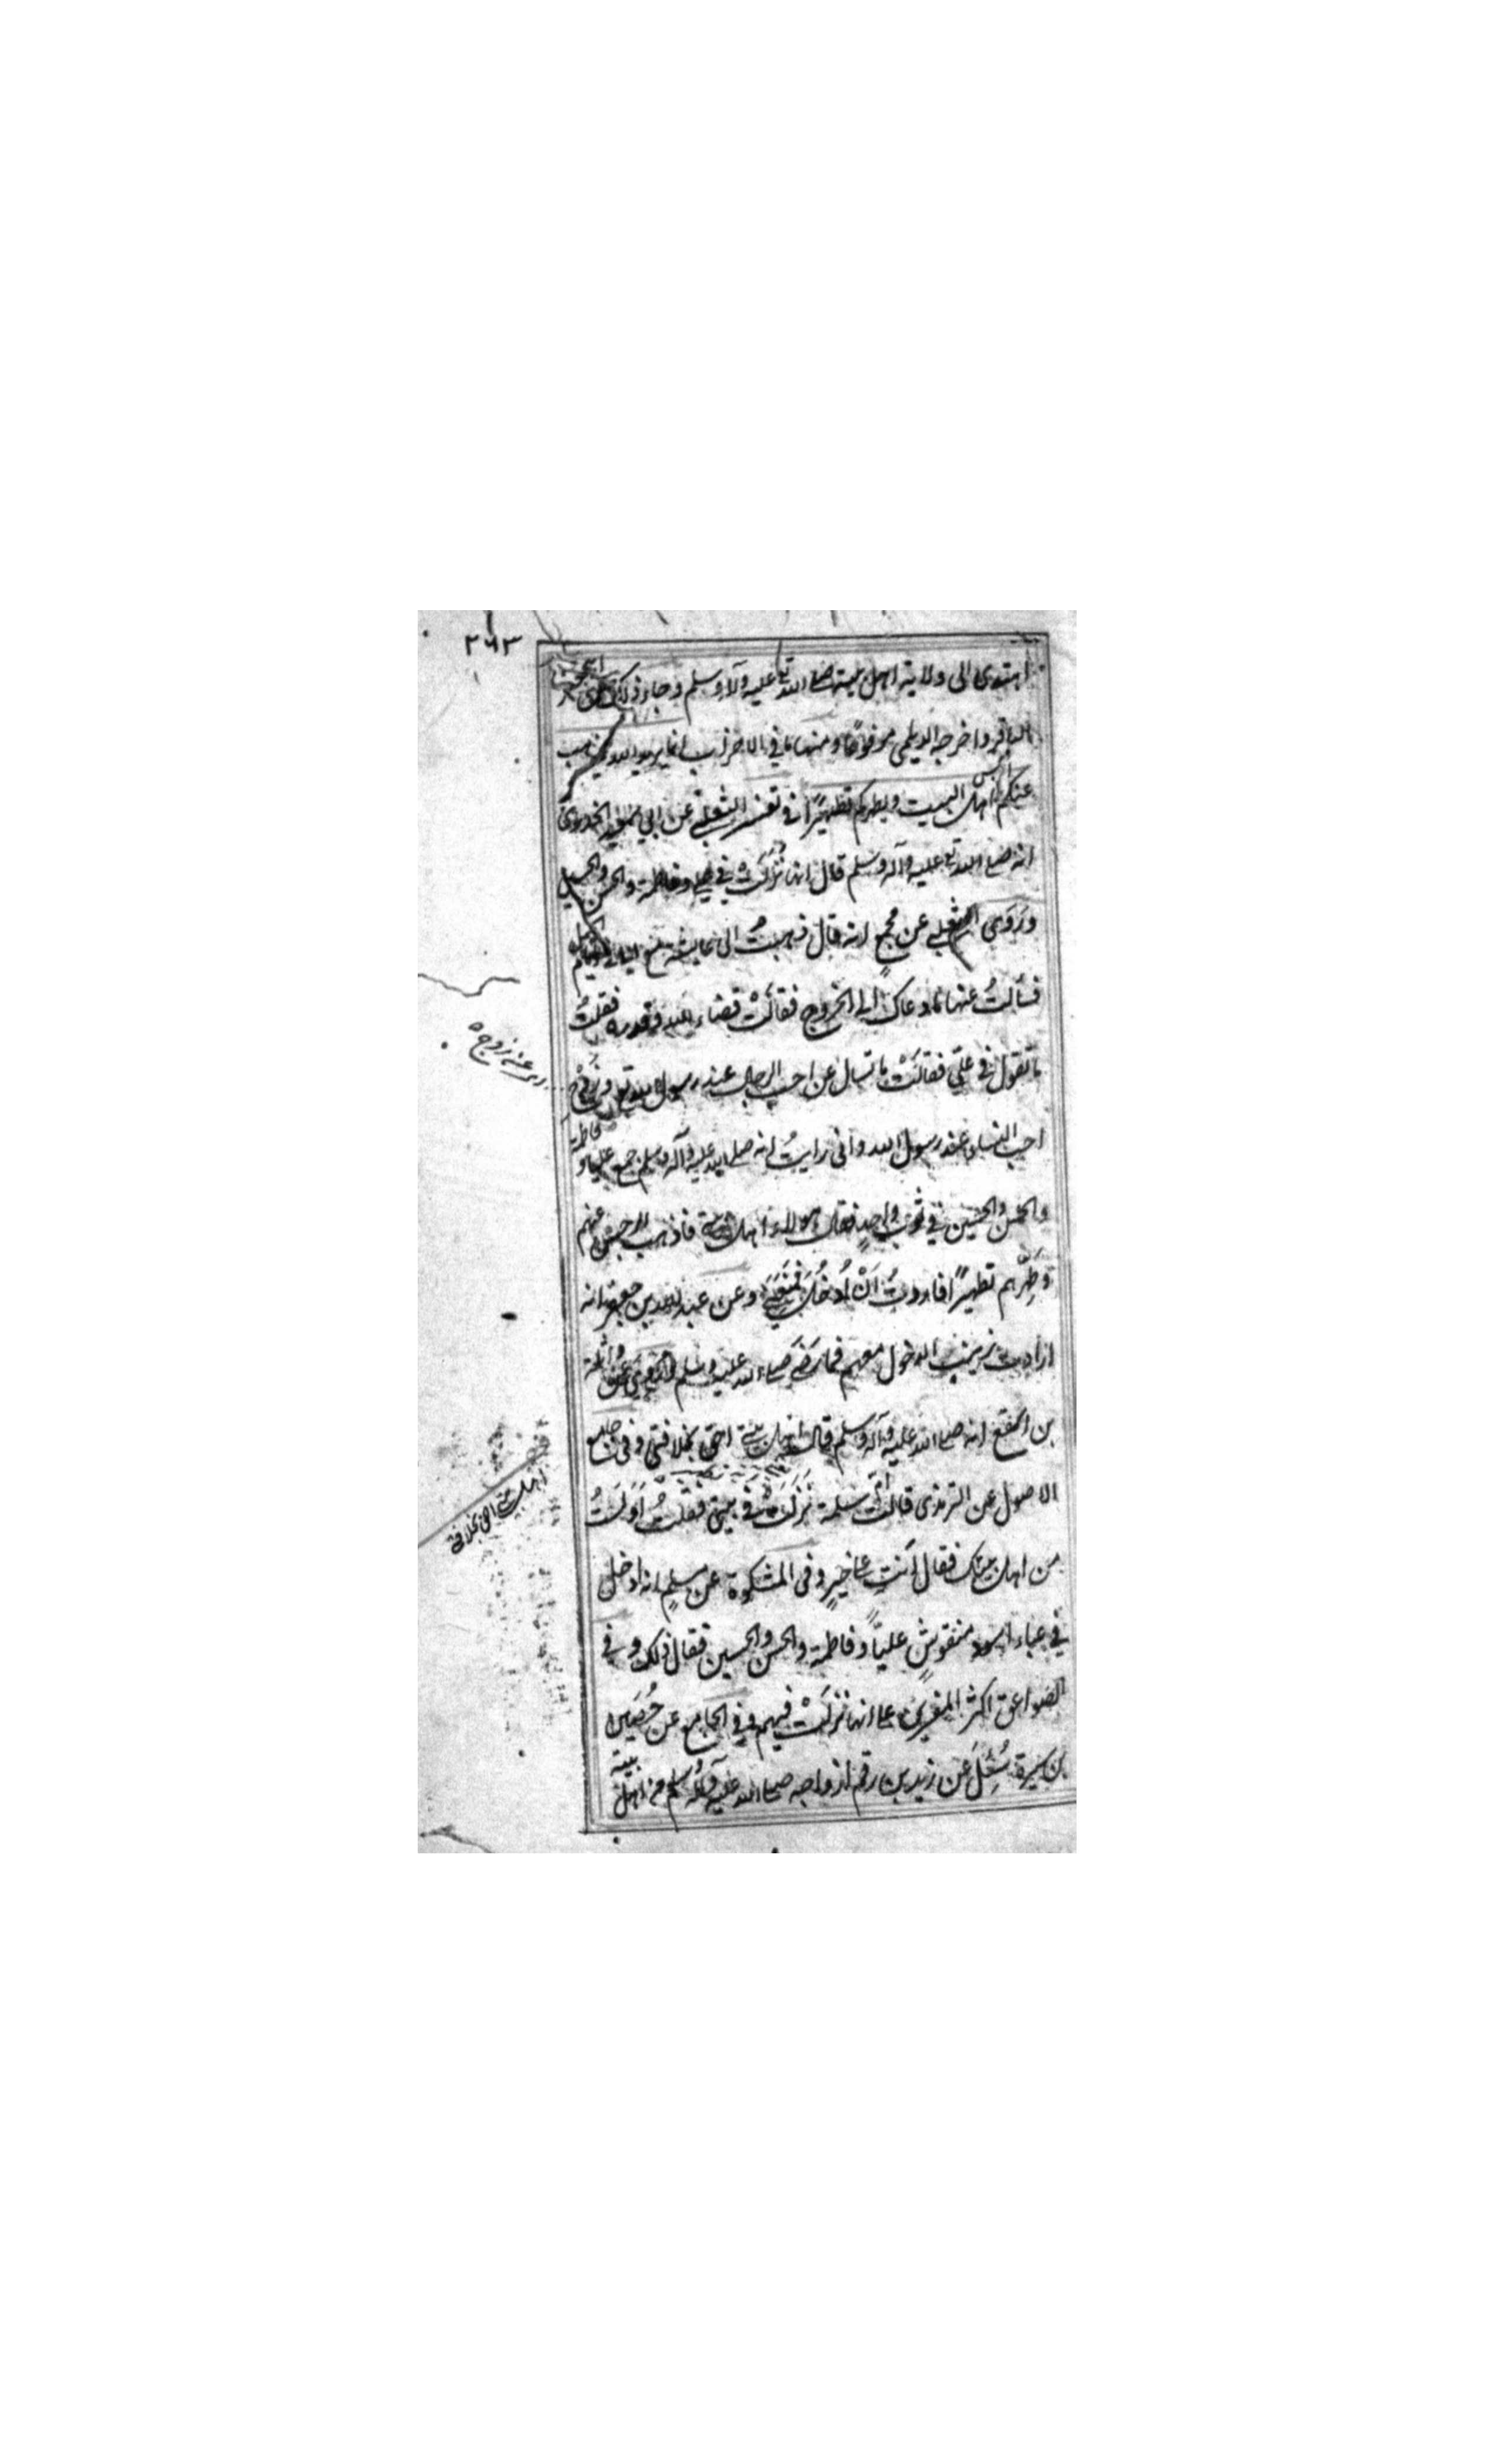 ٢٦٣
اهتدى الى ولاية اهل بيته صلى الله تعالى عليه وآله وسلم وجاء ذلك عن
الباقر واخرجه الديلمي مرفوعًا ومنها ما في الاحزاب انما يريد الله ليذهب
عنكم الرجس اهل البيت ويطهركم تطهيرًا في تفسير الثعلبي عن ابي سعيد الخدري
انه صلى الله تعالى عليه وآله وسلم قال انها نزلت في علي وفاطمة والحسن والحسين
وروى الثعلبي عن مجمع انه قال ذهبتُ الى عايشة مع
فسألتُ عنها ما دعاك الى الخروج فقالت قضاء الله وقدره فقلتُ
ما تقول في عليّ فقالت ما تسال عن احب الرجال عند رسول الله وزوج
احب النساء عند رسول الله واني رايتُ انه صلى الله عليه وآله وسلم جمع عليا وفاطمة
والحسن والحسين في ثوب واحدٍ فقال هولاء اهل بيتي فاذهب الرجس عنهم
وطهّرهم تطهيرًا فاردتُ اَنْ اُدخُلَ فمنعني وعن عبد الله بن جعفر انه
ارادت زينب الدخول معهم فما رضي صلى الله عليه وسلم وروي عن واثلة
بن الاسقع انه صلى الله عليه وآله وسلم قال اهل بيتي احق بخلافتي وفي جامع
الاصول عن الترمذي قالت ام سلمة نَزَلَتْ في بيتي فقلتُ اَوَلَستُ
من اهل بيتك فقال اَنتِ على خيرٍ وفي المشكوة عن مسلمٍ انه ادخل
في عباء اسود منقوشٍ عليّاً وفاطمة والحسن والحسين فقال ذلك وفي
الصواعق اكثر المفسرين على انها نزلت فيهم وفي الجامع عن حُصَين
بن سبرة سُئِلَ عن زيد بن ارقم ازواجه صلى الله عليه وآله وسلم من اهل بيته
عنه زوج
اهل بيتي احق بخلافتي